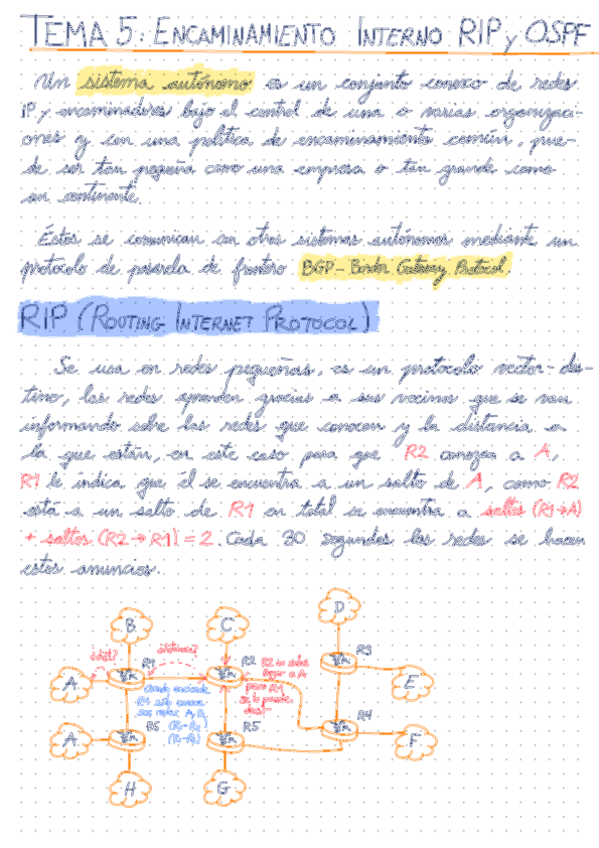 TEMA 5: ENCAMINAMIENTO INTERNO RIP y OSPF
Un sistema autónomo es un conjunto conexo de redes
IP y encaminadores bajo el control de una o varias organizaci-
ones y con una política de encaminamiento común, pue-
de ser tan pequeña como una empresa o tan grande como
un continente.
Éstos se comunican con otros sistemas autónomos mediante un
protocolo de pasarela de frontero BGP - Border Gateway Protocol.
RIP (ROUTING INTERNET PROTOCOL)
Se usa en redes pequeñas, es un protocolo vector-des-
tino, las redes aprenden gracias a sus vecinos que se van
informando sobre las redes que conocen y la distancia a
la que están, en este caso para que R2 conozca a A,
R1 le indica que él se encuentra a un salto de A, como R2
está a un salto de R1 en total se encuentra a saltos (R1→A)
+ saltos (R2→R1) = 2. Cada 30 segundos las redes se hacen
estos anuncios.
D
B
C
R3
R1
R2
A
E
R4
R6
R5
A
F
H
G